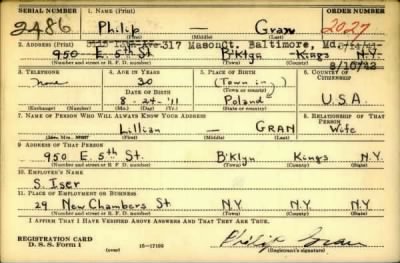 SERIAL NUMBER 1. NAME (Print) ORDER NUMBER
2486 Philip — Gran 2027
(First) (Middle) (Last)
2. ADDRESS (Print) 317 Mason Ct., Baltimore, Md.
950 E. 5th St. B'klyn Kings N.Y.
(Number and street or R. F. D. number) (Town) (County) (State)
8/10/42
3. TELEPHONE 4. AGE IN YEARS 5. PLACE OF BIRTH 6. COUNTRY OF CITIZENSHIP
None 30 (Town in)
DATE OF BIRTH (Town or county)
8-24-'11 Poland U.S.A.
(Exchange) (Number) (Mo.) (Day) (Yr.) (State or country)
7. NAME OF PERSON WHO WILL ALWAYS KNOW YOUR ADDRESS 8. RELATIONSHIP OF THAT PERSON
Lillian — GRAN Wife
(Mr., Mrs., Miss) (First) (Middle) (Last)
9. ADDRESS OF THAT PERSON
950 E. 5th St. B'klyn Kings N.Y.
(Number and street or R. F. D. number) (Town) (County) (State)
10. EMPLOYER'S NAME
S. Iser
11. PLACE OF EMPLOYMENT OR BUSINESS
29 New Chambers St. N.Y. N.Y. N.Y.
(Number and street or R. F. D. number) (Town) (County) (State)
I AFFIRM THAT I HAVE VERIFIED ABOVE ANSWERS AND THAT THEY ARE TRUE.
REGISTRATION CARD
D. S. S. FORM 1 16-17105 Philip Gran
(over) (Registrant's signature)